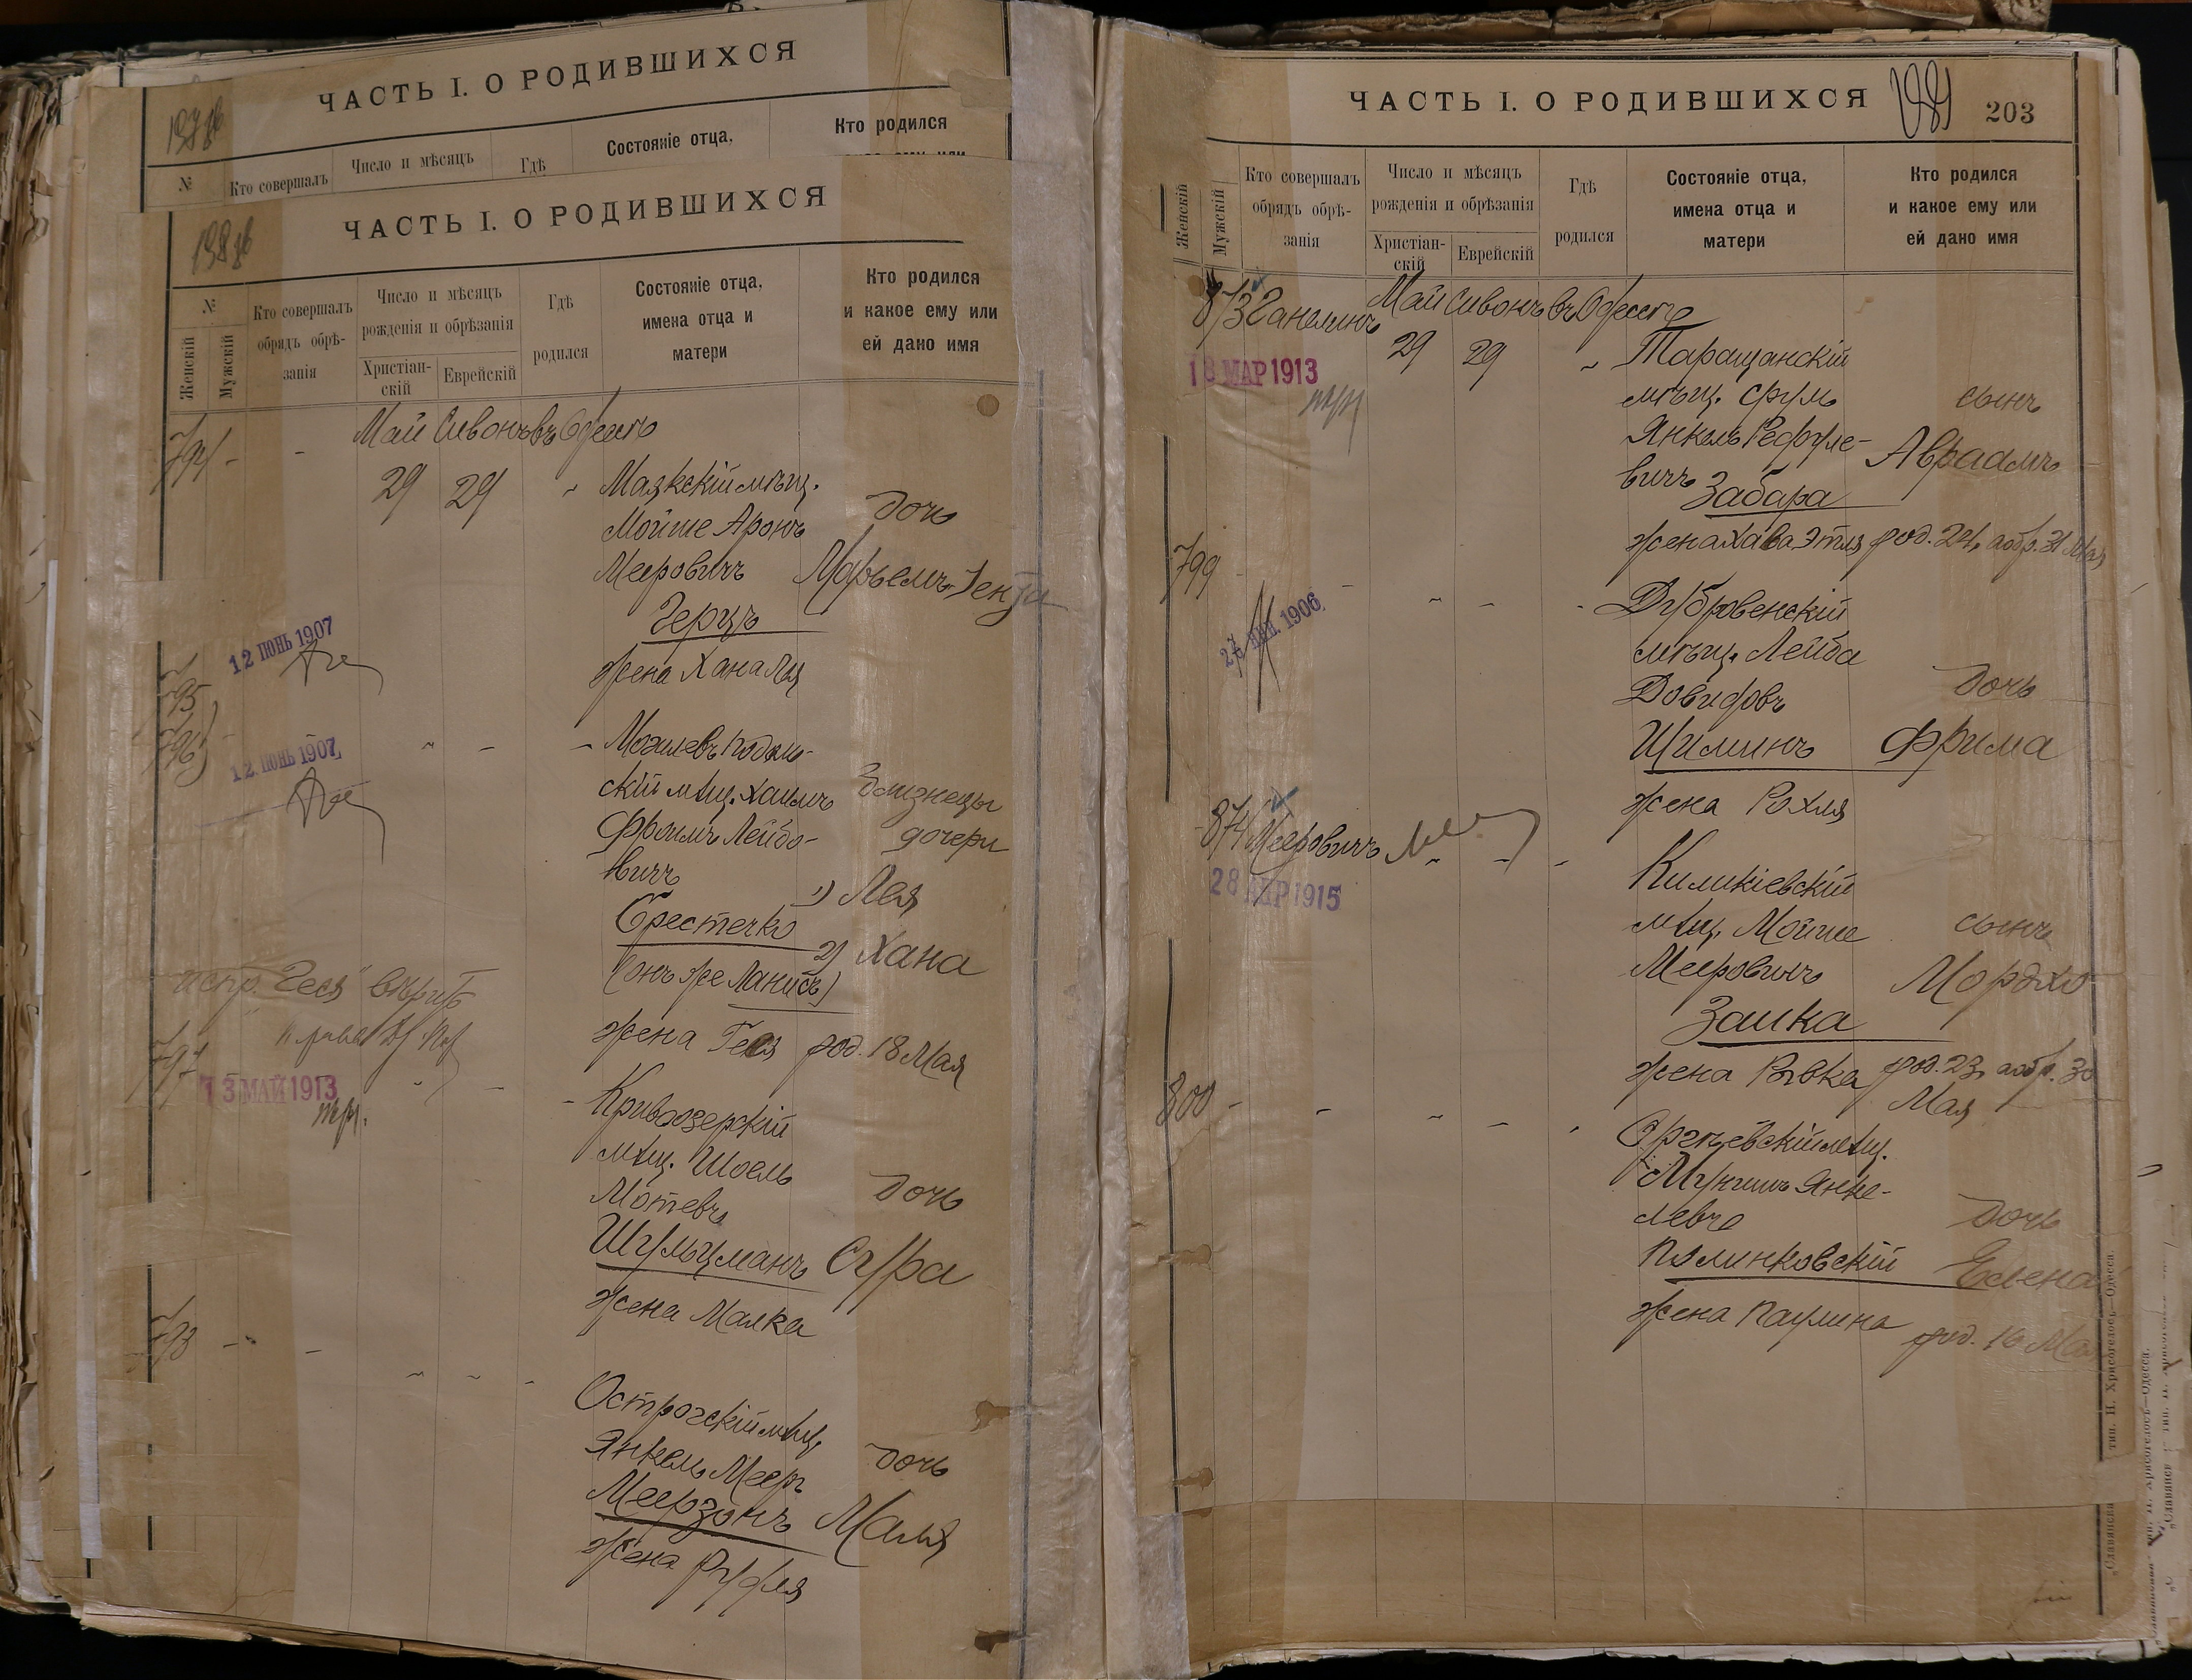 ЧАСТЬ I. О РОДИВШИХСЯ
№
Кто совершалъ
Число и мѣсяцъ
Гдѣ
Состояніе отца,
Кто родился
ЧАСТЬ I. О РОДИВШИХСЯ
№
Женскій
Мужскій
Кто совершалъ
обрядъ обрѣ-
занія
Число и мѣсяцъ
рожденія и обрѣзанія
Христіан-
скій
Еврейскій
Гдѣ
родился
Состояніе отца,
имена отца и
матери
Кто родился
и какое ему или
ей дано имя
794 - - Май Сивонъ въ Одессѣ
29 29 Мазкскій мѣщ.
Мойше Аронъ дочь
Меировичъ Марьемъ-Гензя
Герцъ
жена Хана Лея
12 ІЮНЬ 1907
795
796
12 ІЮНЬ 1907
Могилевъ Подоль-
скій мѣщ. Хаимъ близнецы
Фроимъ Лейбо- дочери
вичъ 1) Лея
Берестечко 2) Хана
(онъ же Ланисъ)
жена Геся род. 18 Мая
испр. "Геся" вѣрить
797
13 МАЙ 1913
Кривоозерскій
мѣщ. Шоель
Мотевъ дочь
Шульцманъ Сура
жена Малка
798
Острогскій мѣщ.
Янкель Мееръ дочь
Меерзонъ Маля
жена Рухля
ЧАСТЬ I. О РОДИВШИХСЯ
203
Женскій
Мужскій
Кто совершалъ
обрядъ обрѣ-
занія
Число и мѣсяцъ
рожденія и обрѣзанія
Христіан-
скій
Еврейскій
Гдѣ
родился
Состояніе отца,
имена отца и
матери
Кто родился
и какое ему или
ей дано имя
873 Ганелинъ Май Сивонъ въ Одессѣ
29 29 Таращанскій
18 МАР 1913
мѣщ. Срул сынъ
Янкель Рефуле- Авраамъ
вичъ Забара
жена Хава Этля род. 24, а обр. 31 Мая
799
27 1906
Дубровенскій
мѣщ. Лейба
Довидовъ дочь
Шилинъ Фрима
жена Рохля
874 Мееровичъ
28 АПР 1915
Киликіевскій
мѣщ. Мойше сынъ
Меировичъ Мордхо
Заика
жена Ривка род. 23, а обр. 30
Мая
800
Оргѣевскій мѣщ.
Мунишъ Янке-
левъ дочь
Полинковскій Елена
жена Паулина род. 16 Мая
тип. Н. Хрисогелосъ—Одесса.